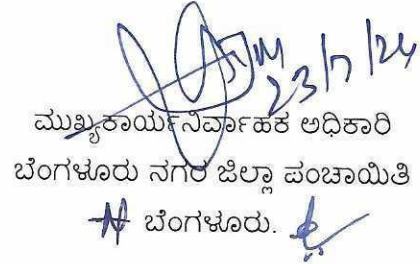 23/7/24
ಮುಖ್ಯಕಾರ್ಯನಿರ್ವಾಹಕ ಅಧಿಕಾರಿ
ಬೆಂಗಳೂರು ನಗರ ಜಿಲ್ಲಾ ಪಂಚಾಯಿತಿ
ಬೆಂಗಳೂರು.